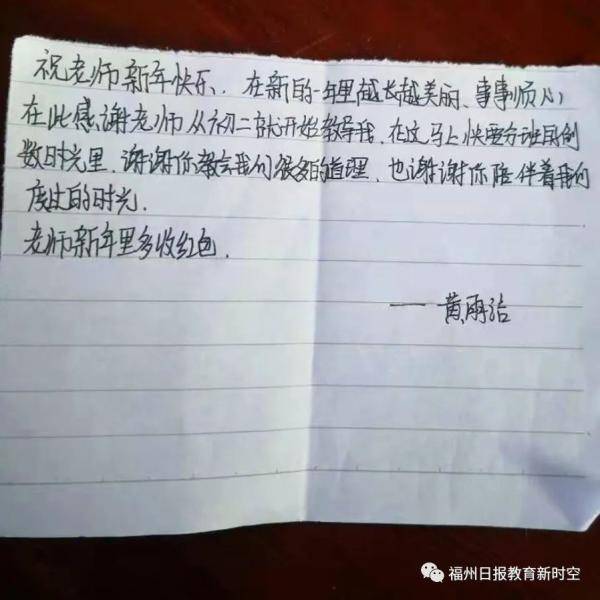 祝老师新年快乐，在新的一年里越长越美丽、事事顺心
在此感谢老师从初二就开始教导我，在这马上快要分班的倒
数时光里，谢谢你教会我们很多的道理，也谢谢你陪伴着我们
度过的时光．
老师新年里多收红包．
——黄雨洁
福州日报教育新时空